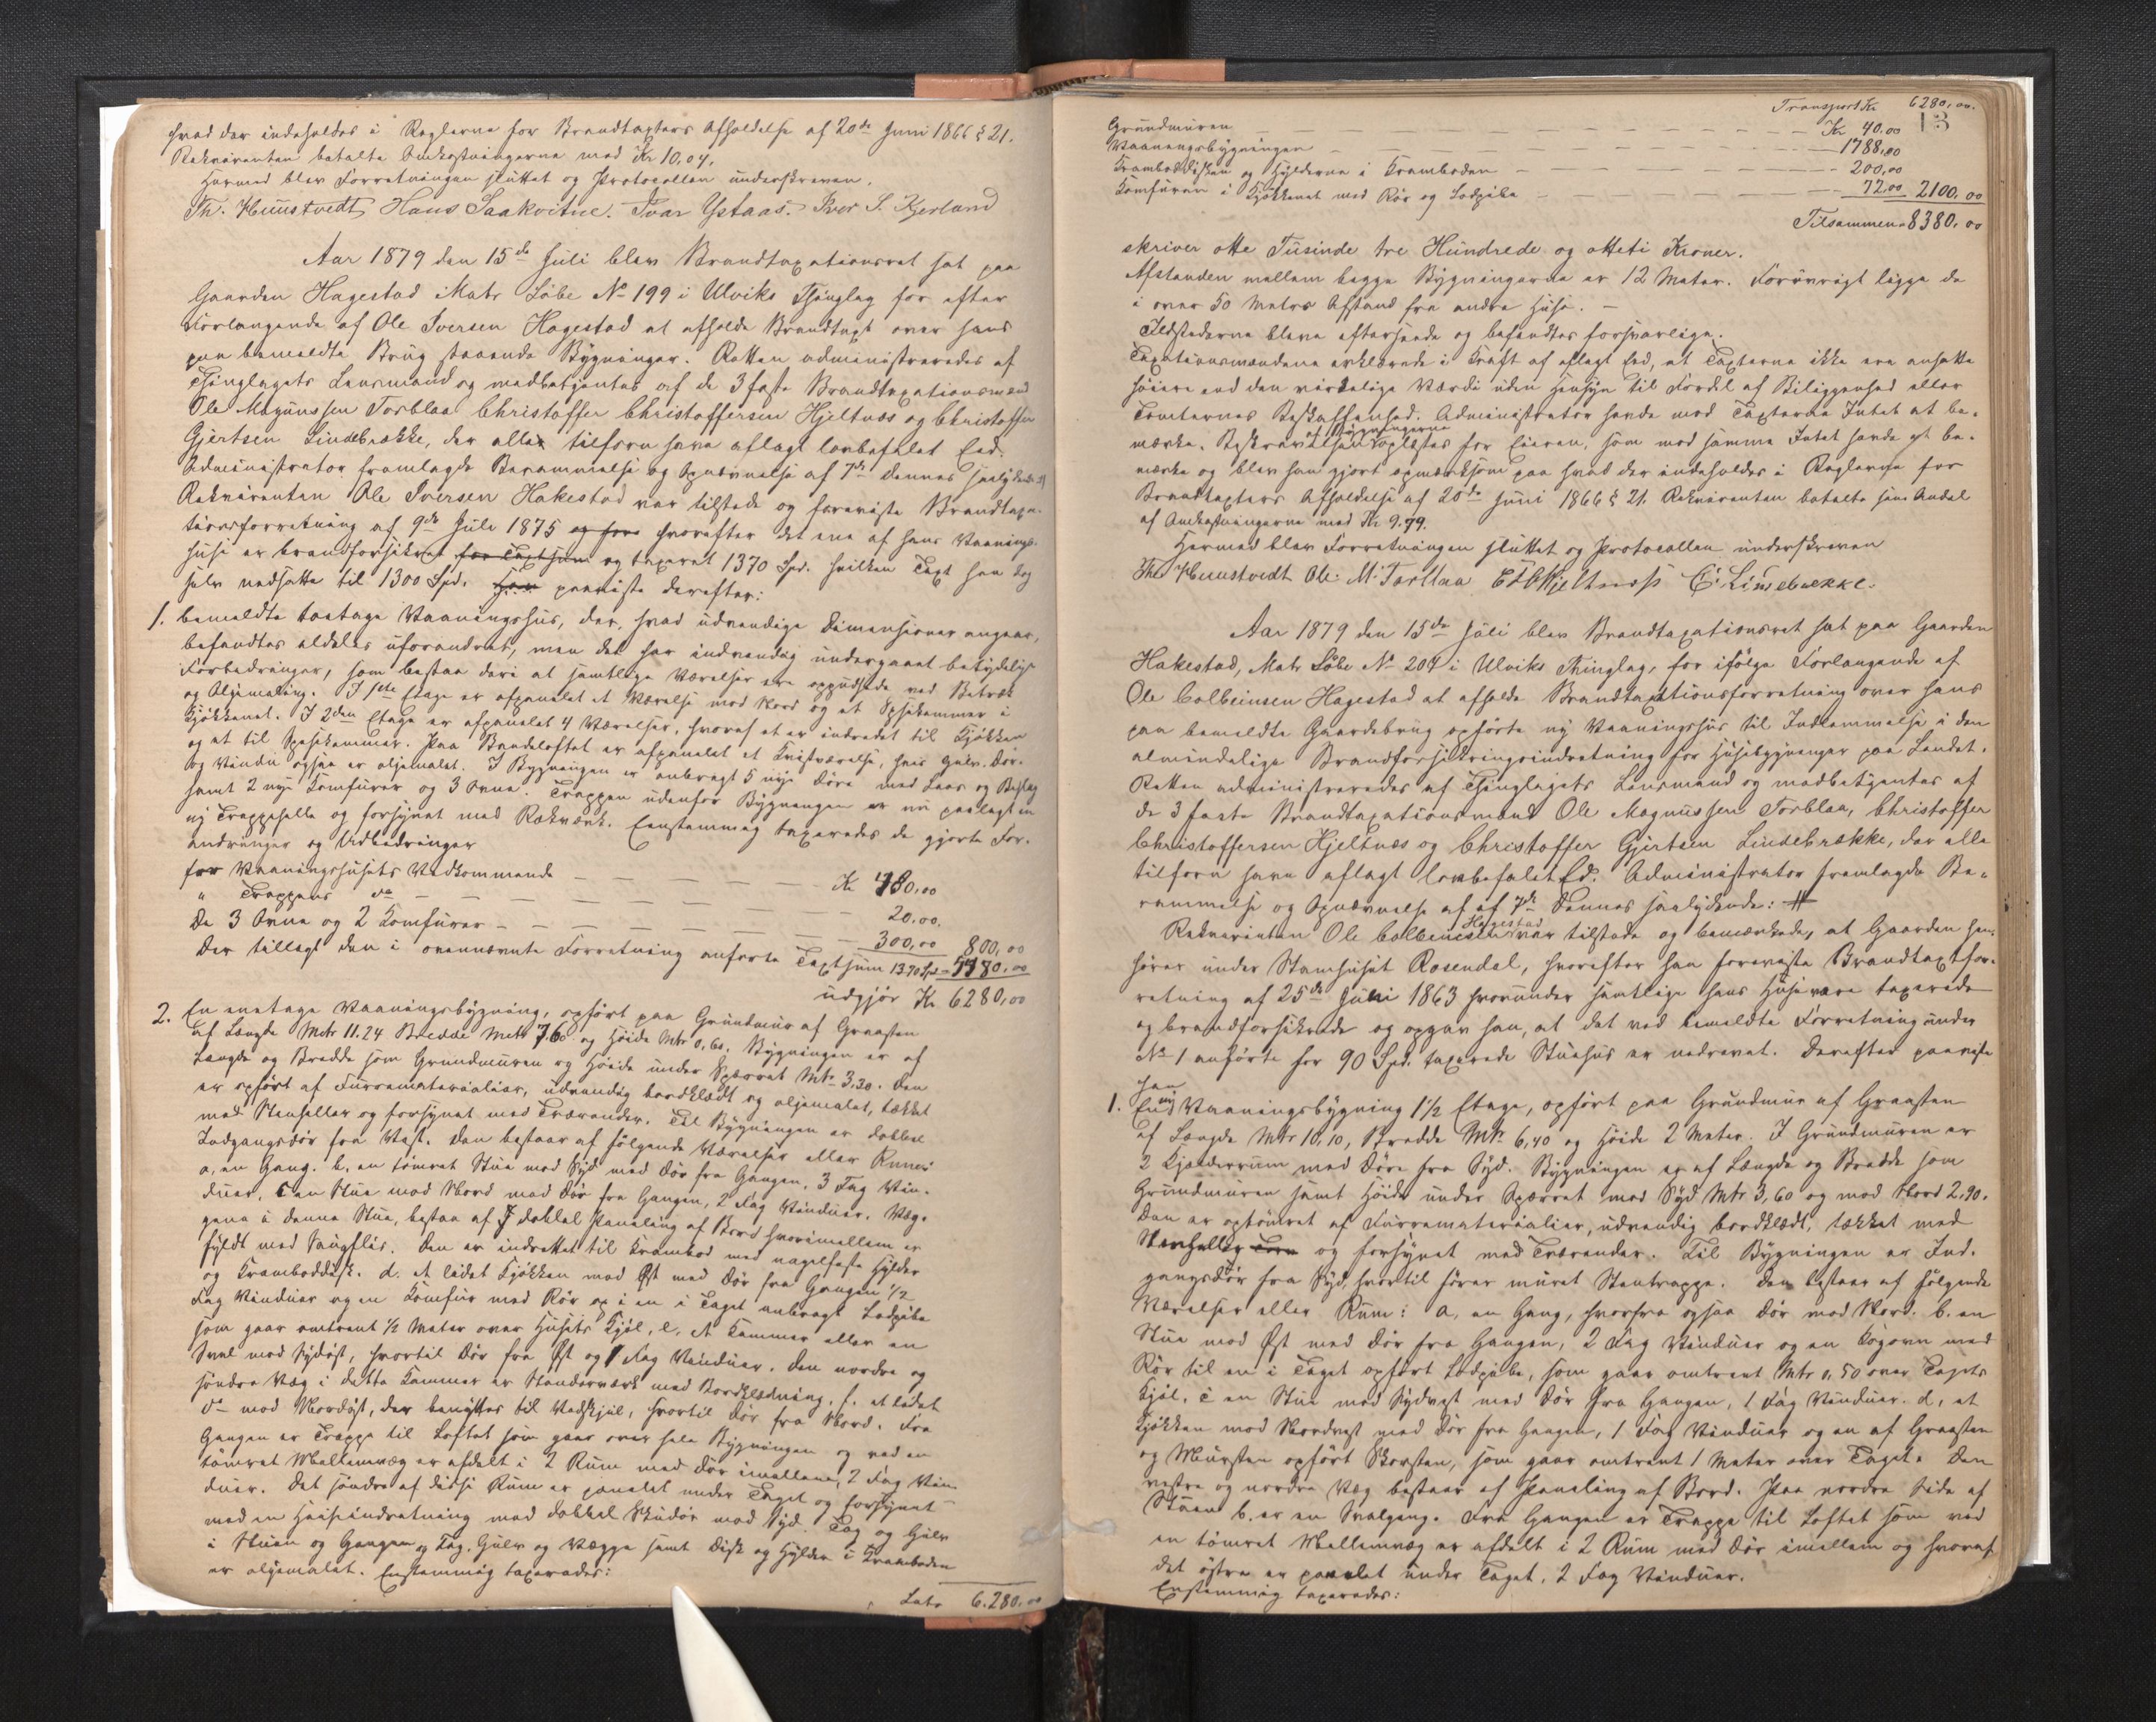 hvad der indeholdes i Reglerne for Brandtaxters Afholdelse af 20de Juni 1866 § 21.
Rekvirenten betalte Omkostningerne med Kr 10.04.
Hermed blev Forretningen sluttet og Protocollen underskreven.
Th. Huustvedt, Hans Saakvitne. Ivar Ystaas. Iver S. Kjerland
Aar 1879 den 15de Juli blev Brandtaxationsret sat paa
Gaarden Hagestad Matr Løbe No 199 i Ulviks Thinglag for efter
Forlangende af Ole Iversen Hagestad at afholde Brandtaxt over hans
paa bemeldte Brug staaende Bygninger. Retten administreredes af
Thinglagets Lensmand og medbetjentes af de 3 faste Brandtaxationsmænd
Ole Magnussen Torblaa Christoffer Christoffersen Hjeltnæs og Christoffer
Gjertsen Lindebrække, der alle tilforn have aflagt lovbefalet Eed.
Administrator fremlagde Berammelse og Opnævnelse af 7de dennes saalydende #
Rekvirenten Ole Iversen Hakestad var tilstede og foreviste Brandtaxa-
tionsforretning af 9de Juli 1875 og hvorefter det ene af hans Vaanings-
huse er brandforsikret for Taxtsum og taxeret 1370 Spd. hvilken Taxt han dog
selv nedsatte til 1300 Spd. Han paaviste derefter:
1. bemeldte toetages Vaaningshus, der, hvad udvendige Dimensioner angaar,
befandtes aldeles uforandret, men det har indvendig undergaaet betydelige
Forbedringer, som bestaa deri at samtlige Værelser ere oppudsede ved Betræk
og Oljemaling. I 1ste Etage er afpanelet et Værelse mod Nord og et Spisekammer i
Kjøkkenet. I 2den Etage er afpanelet 4 Værelser, hvoraf et er indredet til Kjøkken
og et til Spisekammer. Paa Brædeloftet er afpanelet et Kvistværelse, hvis Gulv, Dør
og Vindu ogsaa er oljemalet. I Bygningen er anbragt 5 nye Døre med Laas og Beslag
samt 2 nye Komfurer og 3 Ovne. Trappen udenfor Bygningen er nu paalagt en
ny Trappehelle og forsynet med Rækværk. Eenstemmig taxeredes de gjorte For-
andringer og Udbedringer
for Vaaningshusets Vedkommende Kr 480,00
" Trappens do 20,00.
De 3 Ovne og 2 Komfurer 300,00 800,00
Der tillagt den i ovennævnte Forretning anførte Taxtsum 1370 Spd = 5480,00
udgjør Kr 6280,00
2. En eenetage Vaaningsbygning, opført paa Grundmur af Graasten
af Længde Mtr 11.24 Bredde Mtr 7.60 og Høide Mtr 0.60. Bygningen er af
Længde og Bredde som Grundmuren og Høide under Sperret Mtr 3.30. Den
er opført af Furrematerialier, udvendig bordklædt og oljemalet, tækket
med Stenheller og forsynet med Tværender. Til Bygningen er dobbel
Indgangsdør fra Vest. Den bestaar af følgende Værelser eller Rum:
a, en Gang. b. en tømret Stue mod Syd med Dør fra Gangen, 3 Fag Vin-
duer. c en Stue mod Nord med Dør fra Gangen, 2 Fag Vinduer. Væg-
gene i denne Stue, bestaa af dobbel Paneling af Bord hvorimellem er
fyldt med Saugflis. Den er indrettet til Krambod med nagelfaste Hylder
og Kramboddisk. d. et lidet Kjøkken mod Øst med Dør fra Gangen 1/2
Fag Vinduer og en Komfur med Rør op i en i Taget anbragt Lodpibe
som gaar omtrent 1/2 Meter over Husets Kjøl, e. et Kammer eller en
Sval mod Sydøst, hvortil Dør fra Øst og 1 Fag Vinduer. Den nordre og
søndre Væg i dette Kammer er Stenderværk med Bordklædning. f. et lidet
do mod Nordøst, der benyttes til Vedskjul, hvortil Dør fra Nord. Fra
Gangen er Trappe til Loftet som gaar over hele Bygningen og ved en
tømret Mellemvæg er afdelt i 2 Rum med Dør imellem, 2 Fag Vin-
duer. Det søndre af disse Rum er panelet under Taget og forsynet
med en Heiseindretning med dobbel Skudør mod Syd. Tag og Gulv
i Stuen og Gangen og Tag, Gulv og Vægge samt Disk og Hylder i Kramboden
er oljemalet. Enstemmig taxeredes:
Lats 6.280.00
Transport Kr 6280,00.
13
Grundmuren Kr 40.00
Vaaningsbygningen 1788,00
Kramboddisken og Hylderne i Kramboden 200,00
Komfuren i Kjøkkenet med Rør og Lodpibe 72.00 2100,00
Tilsammen 8380.00
skriver otte Tusinde tre Hundrede og otteti Kroner.
Afstanden mellem begge Bygningerne er 12 Meter. Forøvrigt ligge de
i over 50 Meters Afstand fra andre Huse.
Ildstederne bleve efterseede og befandtes forsvarlige.
Taxationsmændene erklærede i Kraft af aflagt Eed, at Taxterne ikke ere ansatte
høiere end den virkelige Værdi uden Hensyn til Fordel af Beliggenhed eller
Tomternes Beskaffenhed. Administrator havde mod Taxterne Intet at be-
mærke. Beskrivelsen af Bygningerne oplæstes for Eieren, som mod samme Intet havde at be-
mærke og blev han gjort opmærksom paa hvad der indeholdes i Reglerne for
Brandtaxters Afholdelse af 20de Juni 1866 § 21. Rekvirenten betalte sin Andel
af Omkostningerne med Kr 9.79.
Hermed blev Forretningen sluttet og Protocollen underskreven
Th. Huustvedt Ole M. Torblaa C. C. Hjeltnæss C. Lindebrække.
Aar 1879 den 15de Juli blev Brandtaxationsret sat paa Gaarden
Hakestad, Matr Løbe No 204 i Ulviks Thinglag, for ifølge Forlangende af
Ole Colbeinsen Hagestad at afholde Brandtaxationsforretning over hans
paa bemeldte Gaardebrug opførte ny Vaaningshus til Indlemmelse i den
almindelige Brandforsikringsindretning for Husebygninger paa Landet.
Retten administreredes af Thinglagets Lensmand og medbetjentes af
de 3 faste Brandtaxationsmænd Ole Magnussen Torblaa, Christoffer
Christoffersen Hjeltnæs og Christoffer Gjertsen Lindebrække, der alle
tilforn have aflagt lovbefalet Ed. Administrator fremlagde Be-
rammelse og Opnævnelse af af 7de Dennes saalydende: #
Rekvirenten Ole Colbeinsen Hagestad var tilstede og bemærkede, at Gaarden hen-
hører under Stamhuset Rosendal, hvorefter han foreviste Brandtaxtfor-
retning af 25de Juni 1863 hvorunder samtlige hans Huse vare taxerede
og brandforsikrede og opgav han, at det ved bemeldte Forretning under
No 1 anførte for 90 Spd. taxerede Stuehus er nedrevet. Derefter paaviste
han
1. En ny Vaaningsbygning 1 1/2 Etage, opført paa Grundmur af Graasten
af Længde Mtr 10,10, Bredde Mtr 6,40 og Høide 2 Meter. I Grundmuren er
2 Kjælderrum med Døre fra Syd. Bygningen er af Længde og Bredde som
Grundmuren samt Høide under Sperret mod Syd Mtr 3,60 og mod Nord 2.90.
Den er optømret af Furrematerialier, udvendig bordklædt, tækket med
Stenheller og forsynet med Tværender. Til Bygningen er Ind-
gangsdør fra Syd, hvortil fører muret Stentrappe. Den bestaar af følgende
Værelser eller Rum: a, en Gang, hvorfra ogsaa Dør mod Nord. b. en
Stue mod Øst med Dør fra Gangen, 2 Fag Vinduer og en Kogovn med
Rør til en i Taget opført Lodpibe, som gaar omtrent Mtr 0.50 over Tagets
Kjøl. c en Stue mod Sydvest med Dør fra Gangen, 1 Fag Vinduer. d, et
Kjøkken mod Nordvest med Dør fra Gangen, 1 Fag Vinduer og en af Graasten
og Mursten opført Skorsten, som gaar omtrent 1 Meter over Taget. Den
vestre og nordre Væg bestaar af Paneling af Bord. Paa nordre Side af
Stuen b. er en Svalgang. Fra Gangen er Trappe til Loftet som ved
en tømret Mellemvæg er afdelt i 2 Rum med Dør imellem og hvoraf
det østre er panelet under Taget, 2 Fag Vinduer.
Enstemmig taxeredes: